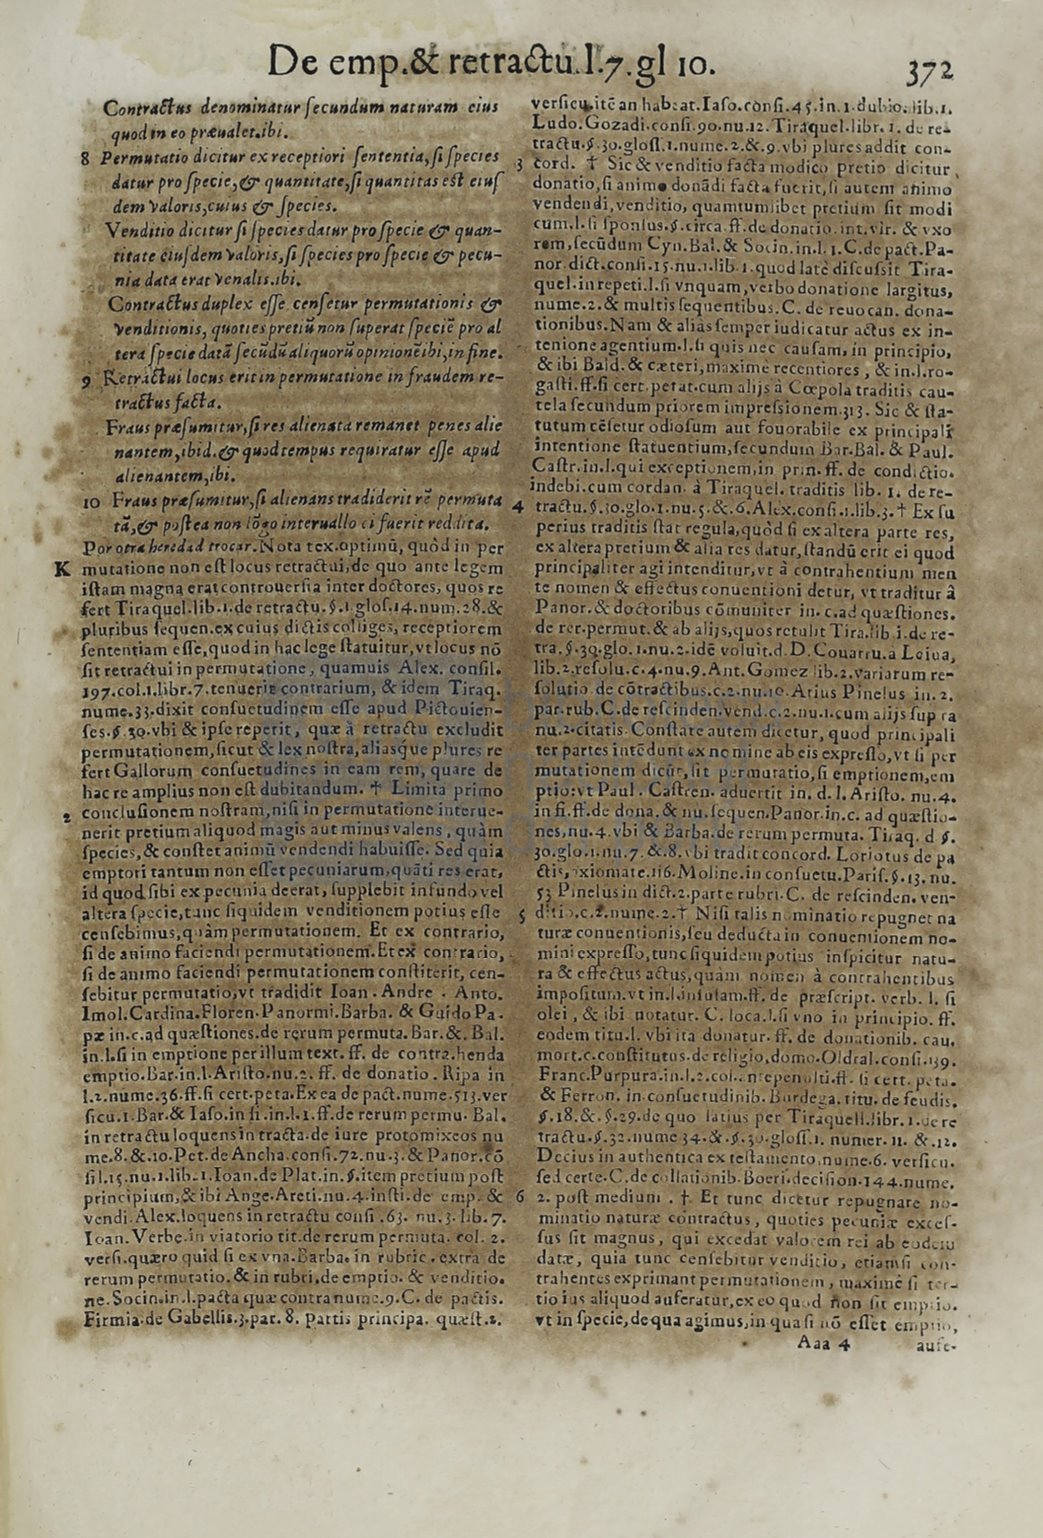 De emp.& retractu.l.7.gl 10.
372
Contractus denominatur ſecundum naturam eius
quod in eo præualet.ibi.
8 Permutatio dicitur ex receptiori ſententia,ſi ſpecies
datur pro ſpecie,& quantitate,ſi quantitas eſt eiuſ
dem valoris,cuius & ſpecies.
Venditio dicitur ſi ſpecies datur pro ſpecie & quan-
titate eiuſdem valoris,ſi ſpecies pro ſpecie & pecu-
nia data erat venalis.ibi.
Contractus duplex eſſe cenſetur permutationis &
venditionis, quoties pretiũ non ſuperat ſpeciẽ pro al
tera ſpecie datã ſecũdũ aliquorũ opinionẽ ibi,in fine.
9 Retractui locus erit in permutatione in fraudem re-
tractus facta.
Fraus præſumitur,ſi res alienata remanet penes alie
nantem,ibid.& quod tempus requiratur eſſe apud
alienantem,ibi.
10 Fraus præſumitur,ſi alienans tradiderit rẽ permuta
tã,& poſtea non lõgo interuallo ei fuerit reddita.
Por otra heredad trocar. Nota tex.optimũ, quòd in per
K mutatione non eſt locus retractui,de quo ante legem
iſtam magna erat controuerſia inter doctores, quos re
fert Tiraquel.lib.1.de retractu.§.1.gloſ.14.num.28.&
pluribus ſequen.ex cuius dictis colliges, receptiorem
ſententiam eſſe,quod in hac lege ſtatuitur,vt locus nõ
ſit retractui in permutatione, quamuis Alex. conſil.
197.col.1.libr.7.tenuerit contrarium, & idem Tiraq.
nume.33.dixit conſuetudinem eſſe apud Pictouien-
ſes.§.30.vbi & ipſe reperit, quæ à retractu excludit
permutationem,ſicut & lex noſtra,aliasque plures re
fert Gallorum conſuetudines in eam rem, quare de
hac re amplius non eſt dubitandum. † Limita primo
2 concluſionem noſtram,niſi in permutatione interue-
nerit pretium aliquod magis aut minus valens, quàm
ſpecies,& conſtet animũ vendendi habuiſſe. Sed quia
emptori tantum non eſſet pecuniarum,quãti res erat,
id quod ſibi ex pecunia deerat, ſupplebit in fundo vel
altera ſpecie,tunc ſiquidem venditionem potius eſſe
cenſebimus,quàm permutationem. Et ex contrario,
ſi de animo faciendi permutationem.Et ex contrario,
ſi de animo faciendi permutationem conſtiterit, cen-
ſebitur permutatio,vt tradidit Ioan. Andre. Anto.
Imol.Cardina.Floren.Panormi.Barba. & Guido Pa-
pæ in c.ad quæſtiones.de rerum permuta. Bar.&. Bal.
in.l.ſi in emptione per illum text. ff. de contra.henda
emptio.Bar.in.l.Ariſto.nu.2. ff. de donatio. Ripa in
l.2.nume.36.ff.ſi cert.peta.Ex ea de pact.nume.513.ver
ſicu.1.Bar.& Iaſo.in fi.in.l.1.ff.de rerum permu. Bal.
in retractu loquens in tracta.de iure protomixeos nu
me.8.&.10.Pet.de Ancha.conſi.72.nu.3.& Panor.cõ
ſil.15.nu.1.lib.1.Ioan.de Plat.in.§.item pretium poſt
principium,& ibi Ange.Areti.nu.4.inſti.de emp. &
vendi.Alex.loquens in retractu conſi.63. nu.3.lib.7.
Ioan.Verbe.in viatorio tit.de rerum permuta. col. 2.
verſi.quæro quid ſi ex vna.Barba. in rubric. extra de
rerum permutatio.& in rubri.de emptio. & venditio.
ne.Socin.in.l.pacta quæ contra nume.9.C. de pactis.
Firmia.de Gabellis.3.par. 8. partis principa. quæſt.2.
verſicu.itẽ an habeat.Iaſo.conſi.45.in.1.dubio.lib.1.
Ludo.Gozadi.conſi.90.nu.12.Tiraquel.libr. 1. de re-
tractu.§.30.gloſſ.1.nume.2.&.9.vbi plures addit con-
3 cord. † Sic & venditio facta modico pretio dicitur
donatio,ſi animo donãdi facta fuerit,ſi autem animo
vendendi,venditio, quamtumlibet pretium ſit modi
cum.l.ſi ſponſus.§.circa.ff.de donatio.int.vir. & vxo
rem,ſecũdum Cyn.Bal.& Socin.in.l.1.C.de pact.Pa-
nor.dict.conſi.15.nu.1.lib.1.quod latè diſcuſsit Tira-
quel.in repeti.l.ſi vnquam,verbo donatione largitus,
nume.2.& multis ſequentibus.C. de reuocan. dona-
tionibus.Nam & aliàs ſemper iudicatur actus ex in-
tenione agentium.l.ſi quis nec cauſam, in principio,
& ibi Bald.& cæteri,maximè recentiores, & in.l.ro-
gaſti.ff.ſi cert.petat.cum alijs à Cœpola traditis cau-
tela ſecundum priorem impreſsionem.313. Sic & ſta-
tutum cẽſetur odioſum aut fouorabile ex principali
intentione ſtatuentium,ſecundum Bar.Bal. & Paul.
Caſtr.in.l.qui exceptionem,in prin.ff. de condictio.
indebi.cum cordan. à Tiraquel. traditis lib. 1. de re-
4 tractu.§.30.glo.1.nu.5.&.6.Alex.conſi.1.lib.3.† Ex ſu
perius traditis ſtat regula,quòd ſi ex altera parte res,
ex altera pretium & alia res datur,ſtandũ erit ei quod
principaliter agi intenditur,vt à contrahentium men
te nomen & effectus conuentioni detur, vt traditur à
Panor.& doctoribus cõmuniter in. c.ad quæſtiones.
de rer.permut.& ab alijs,quos retulit Tira.lib.1.de re-
tra.§.30.glo.1.nu.2.idẽ voluit.d.D.Couarru.à Leiua,
lib.2.reſolu.c.4.nu.9.Ant.Gomez lib.2.variarum re-
ſolutio.de cõtractibus.c.2.nu.10.Arius Pinelus in.2.
par.rub.C.de reſcinden.vend.c.2.nu.1.cum alijs ſupra
nu.2.citatis. Conſtare autem dicetur, quod principali
ter partes intẽdunt ex nomine ab eis expreſſo,vt ſi per
mutationem dicũt,ſit permutatio,ſi emptionem,em
ptio:vt Paul. Caſtren. aduertit in. d.l. Ariſto. nu.4.
in fi.ff.de dona.& nu.ſequen.Panor.in.c. ad quæſtio-
nes,nu.4.vbi & Barba.de rerum permuta. Tiraq. d §.
30.glo.1.nu.7.&.8.vbi tradit concord. Loriotus de pa
ctis, axiomate.116.Moline.in conſuetu.Pariſ.§.13.nu.
53 Pinelus in dict.2.parte rubri.C. de reſcinden. ven-
5 ditio.c.2.nume.2.† Niſi talis nominatio repugnet na
turæ conuentionis,ſeu deducta in conuentionem no-
mini expreſſo,tunc ſiquidem potius inſpicitur natu-
ra & effectus actus,quàm nomen à contrahentibus
impoſitum.vt in.l.inſulam.ff. de præſcript. verb. l. ſi
olei, & ibi notatur. C. loca.l.ſi vno in principio. ff.
eodem titu.l. vbi ita donatur. ff. de donationib. cau.
mort.c.conſtitutus.de religio.domo.Oldral.conſi.139.
Franc.Purpura.in.l.2.col. ff. ſi cert. peta.
& Ferron. in conſuetudinib. Burdega. titu. de feudis.
§.18.&.§.29.de quo latius per Tiraquell.libr.1.de re
tractu.§.32.nume 34.&.§.30.gloſſ.1. numer. 11. &.12.
Decius in authentica ex teſtamento,nume.6. verſicu.
ſed certe.C.de collationib.Boeri.deciſion.144.nume.
6 2. poſt medium. †. Et tunc dicetur repugnare no-
minatio naturæ contractus, quoties pecuniæ exceſ-
ſus ſit magnus, qui excedat valorem rei ab eodem
datæ, quia tunc cenſebitur venditio, etiamſi con-
trahentes exprimant permutationem, maximè ſi ter-
tio ius aliquod auferatur,ex eo quod non ſit emptio.
vt in ſpecie,de qua agimus,in qua ſi nõ eſſet emptio,
Aaa 4
aufe-